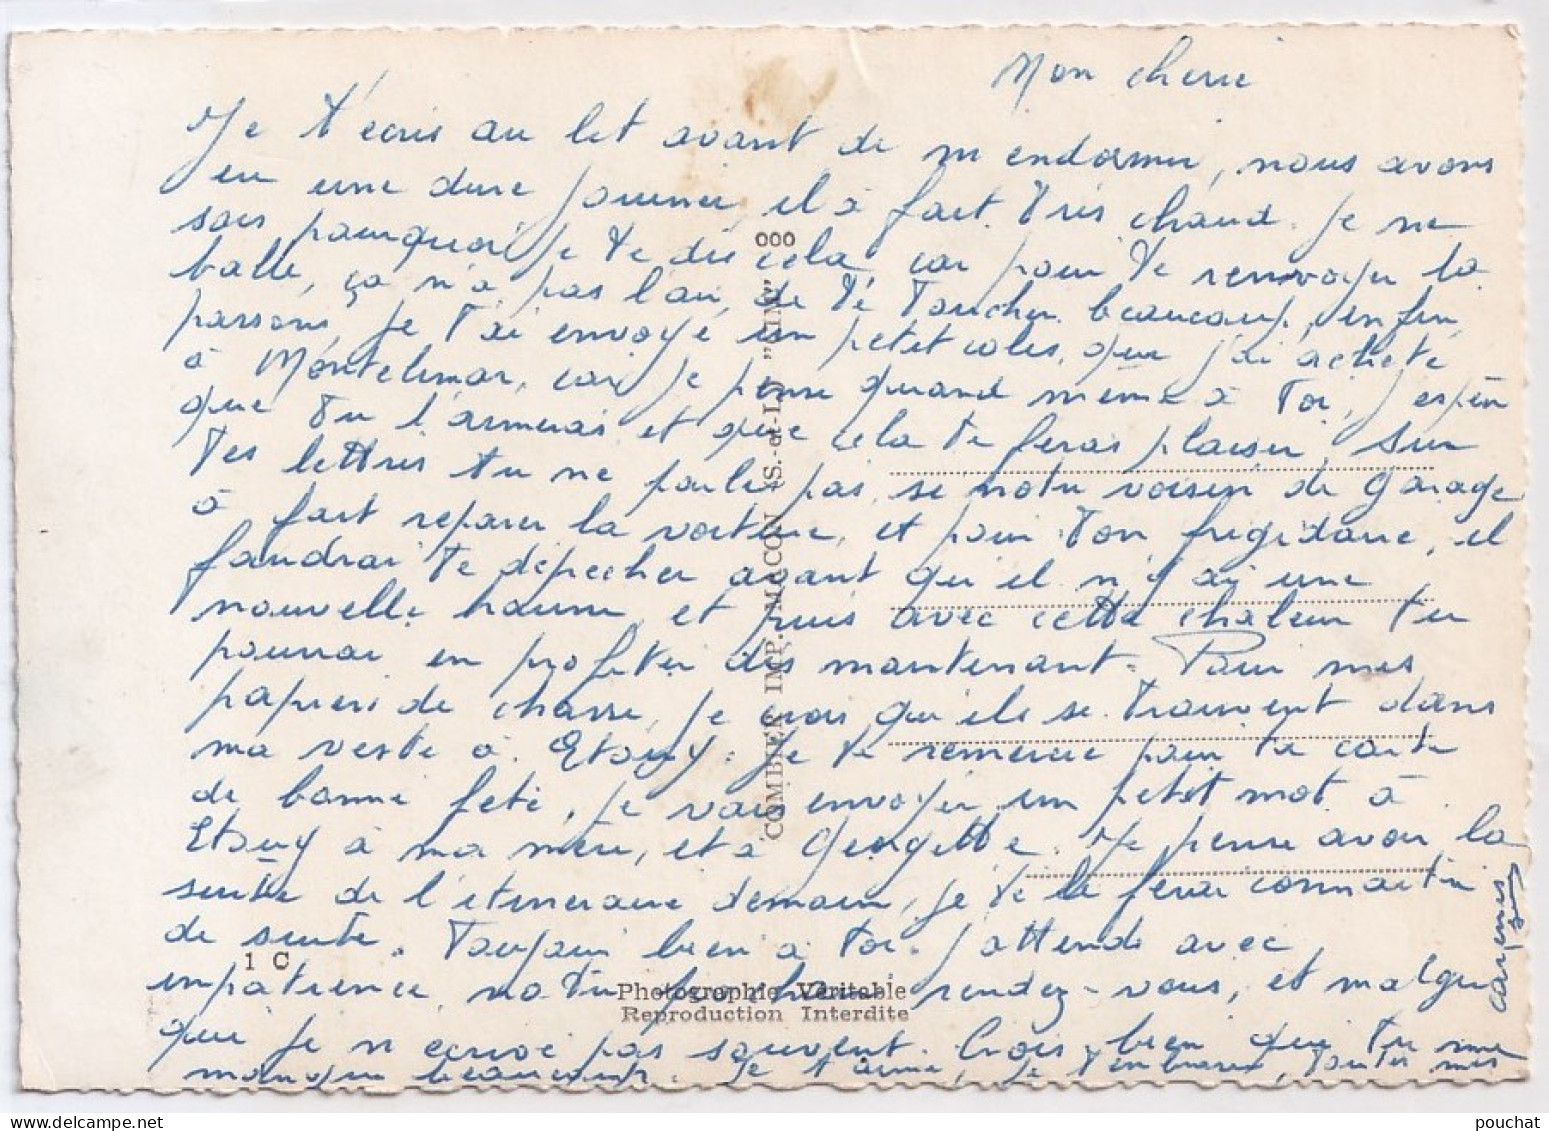 Mon cherie
Je t'ecris au lit avant de m'endormir, nous avons
eu une dure journée, il à fait très chaud. Je ne
sais pourquoi je te dis cela, car pour te renvoyer la
balle, ça n'a pas l'air, de te toucher beaucoup, enfin
passons, je t'ai envoyé un petit colis, que j'ai acheté
à Montelimar, car je pense quand meme à toi, j'espère
que tu l'aimeras et que cela te feras plaisir. Sur
tes lettres tu ne parle pas, si notre voisin de garage
à fait reparer la voiture, et pour ton frigidaire, il
faudrai te dépecher avant qu'il n'y ai une
nouvelle hausse, et puis avec cette chaleur tu
pourrai en profiter dès maintenant. Pour mes
papiers de chasse, je crois qu'ils se trouvent dans
ma veste à Etouy. Je te remercie pour ta carte
de bonne fete, je vais envoyer un petit mot à
Etouy à ma mère, et à Georgette. Je pense avoir la
suite de l'itineraire demain, je te le ferai connaitre
de suite. Toujour bien à toi. J'attends avec
impatience, notre prochain rendez-vous, et malgré
que je n'ecrive pas souvent. Crois bien que tu me
manque beaucoup. Je t'aime, je t'embrasse, toutes mes
caresses
000
COMBIER IMP. MACON (S.-et-L.) "CIM"
1 C
Photographie Véritable
Reproduction Interdite
pouchat